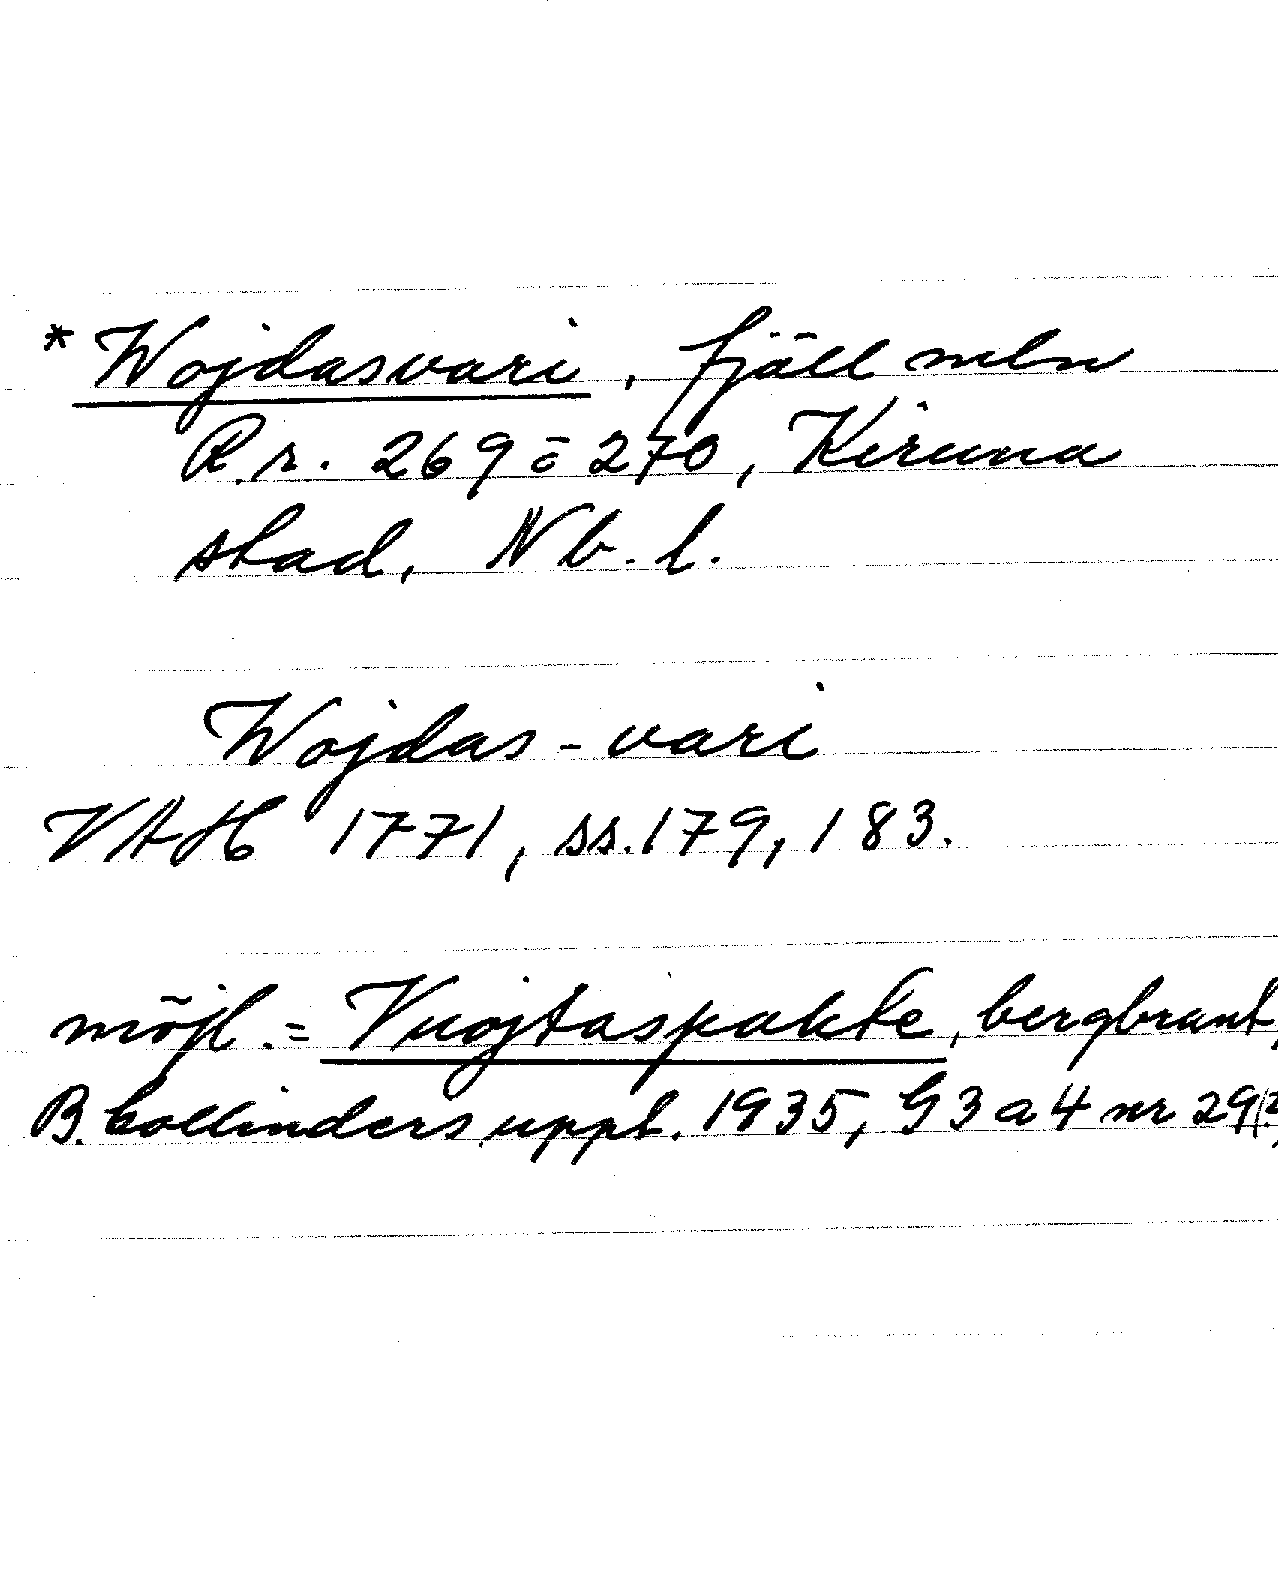 * Wojdasvari, fjäll mln
R.r. 269 o 270, Kiruna
stad, Nb. l.
Wojdas-vari
VAH 1771, ss. 179, 183.
möjl. = Vuojtaspakte, bergbrant,
B. Collinders uppt. 1935, G3a4 nr 29